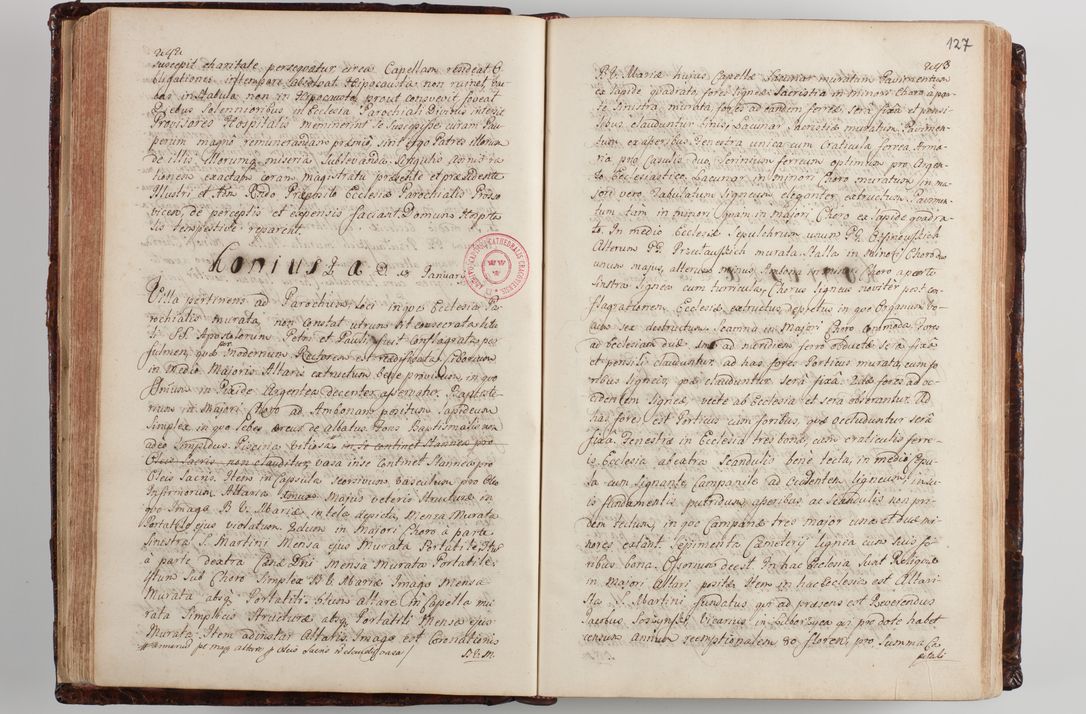 242
suscepit charitate persequatur circa Capellam rendeat O
bligationes in Hypocausta non ruinet,
bas in statula non in Hypocausto, prout consuevit foveat
Solennioribus in Ecclesia Parochiali Divinis intersit
Provisores Hospitalis meminerint se suscepisse curam Pau
perum magno remunerandam præmio, sint ergo Patres illorum
de illis Illorumque miseria sublevanda
tionem exactam coram magistratu præsente et præsidente
Illustri et Adm Rndo Præposito Ecclesiæ Parochialis Proszo
vicen, de perceptis et expensis faciant. Domum Hospita
lis tempestive reparent.
Koniusza D. 13 Januarii
Villa pertinens ad Parochum Loci in qua Ecclesia Pa
rochialis murata, non constat utrum sit consecrata, titu
li SS. Apostolorum Petri et Pauli, fuit conflagrata per
fulmen, quæ per modernum Rectorem est reædificata, Ciborium
in medio Majoris Altaris extructum bene provisum, in quo
in Pixide Argentea decenter asservatur. Baptiste
rium in Majori Choro ad Ambonam positum Lapideum
simplex in quo lebes æreus de albatus. Fons Baptismalis non
adeo limpidus. Piscina vitiosa non continet stannea pro
Oleis Sacris non clauditur, vasa in se continet stannea pro
Oleis Sacris. Item in Capsula seorsivum vasculum pro Oleo
Infirmorum. Altaria Majus veteris structuræ in
quo Imago B. V. Mariæ in tela depicta, Mensa Murata
Portatile ejus violatum. 2dum in Majori Choro à parte
sinistra S. Martini Mensa ejus Murata Portatile. 3tium
à parte dextra Cænæ Dni Mensa Murata Portatile.
4tum sub Choro simplex B. V. Mariæ Imago Mensa
Murata absque Portatili. 5tum Altare in Capella mu
rata simplicis structuræ absque Portatili Mensa ejus
Murata. Item ad instar Altaris Imago est Coronationis
B. V. M.
127
243
B. V. Mariæ hujus Capellæ Lacunar muratum Pavimentum
ex lapide quadrato, fores ligneæ. Sacristia in minori Choro à par
te sinistra murata, fores ad eandem fortes sera fixa et pensi
libus clauduntur binis, Lacunar Sacristiæ muratum, Pavimen
tum ex asseribus Fenestra unica cum Craticula ferrea, Arma
ria pro Casulis duo, Scrinium ferreum optimum pro Argen
to Ecclesiastico, Lacunar in minori Choro muratum, in ma
jori vero Tabulatum ligneum eleganter extructum. Pavimen
tum tam in minori quam in majori Choro ex lapide quadra
to. In medio Ecclesiæ sepulchrum unum
Alterum PP. Przełauskich murata. Stalla in minori Choro duo
unum majus, alterum minus, Ambona in minori Choro a parte
sinistra lignea cum turricula, Chorus ligneus noviter post con
flagrationem Ecclesiæ extructus, depictus in quo Organum Vo
cum sex destructum. Scamna in Majori Choro Commoda. Fores
ad Ecclesiam duæ ad meridiem ferro obductæ sera fixa
et pensili clauduntur, ad has fores Porticus murata, cum fo
ribus ligneis, quæ clauduntur sera fixa. Aliæ fores ad oc
cidentem ligneæ vecte ab Ecclesia et sera obserantur. Ad
has fores est Porticus cum foribus, quæ occluduntur sera
fixa. Fenestræ in Ecclesia tres bonæ, cum craticulis ferre
is. Ecclesia ab extra scandulis bene tecta, in medio Copu
la cum signante. Campanile ad Occidentem ligneum, in su
is fundamentis putridum, asseribus ac scandulis non pri
dem tectum, in quo Campanæ tres major una et duæ mi
nores extant. Sepimenta Cæmeterii lignea cum suis fo
ribus bona. Ossorium deest. In hac Ecclesia sunt Reliquiæ
in majori Altari positæ. Item in hac Ecclesia est Altari
sta S. Martini fundatus qui ad præsens est Reverendus
Vicarius in qui pro dote habet
censum annuum reemptionalem 30 floren. pro Summa Ca
pitali